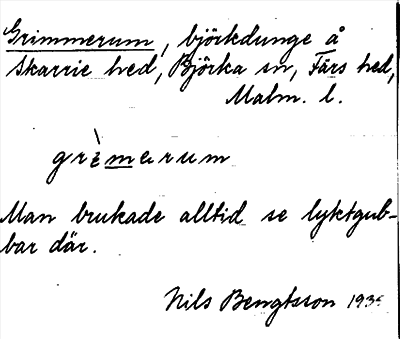 Grimmerum, björkdunge å
Skarrie hed, Björka sn, Färs hd,
Malm. l.
grèmerum
Man brukade alltid se lyktgub-
bar där.
Nils Bengtsson